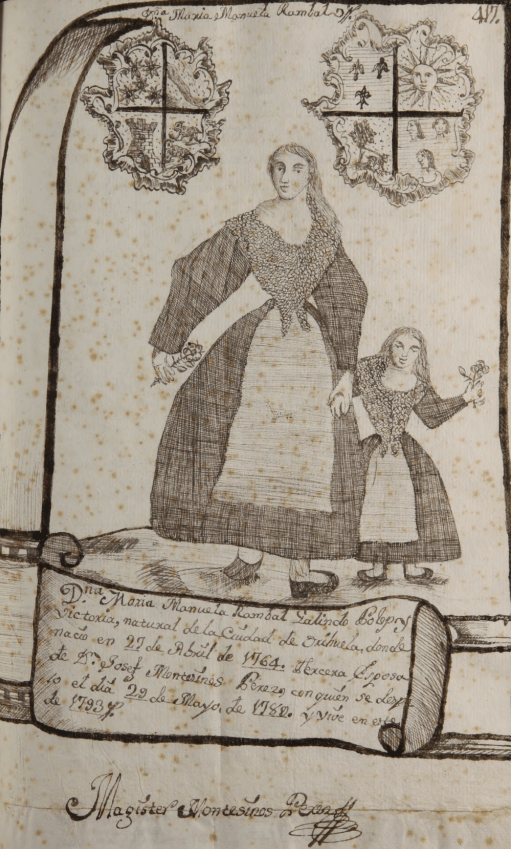 Dna Maria Manuela Rambal
417.
Dna Maria Manuela Rambal Galindo Bolep, y
Victoria, natural de la Ciudad de Orihuela, donde
nacio en 27 de Abril de 1764. Tercera Esposa
de Dn. Josef Montesinos Perez, con quien se despo
so el dia 29 de Mayo, de 1789. y Vive en este
de 1793
Magister Montesinos Perez